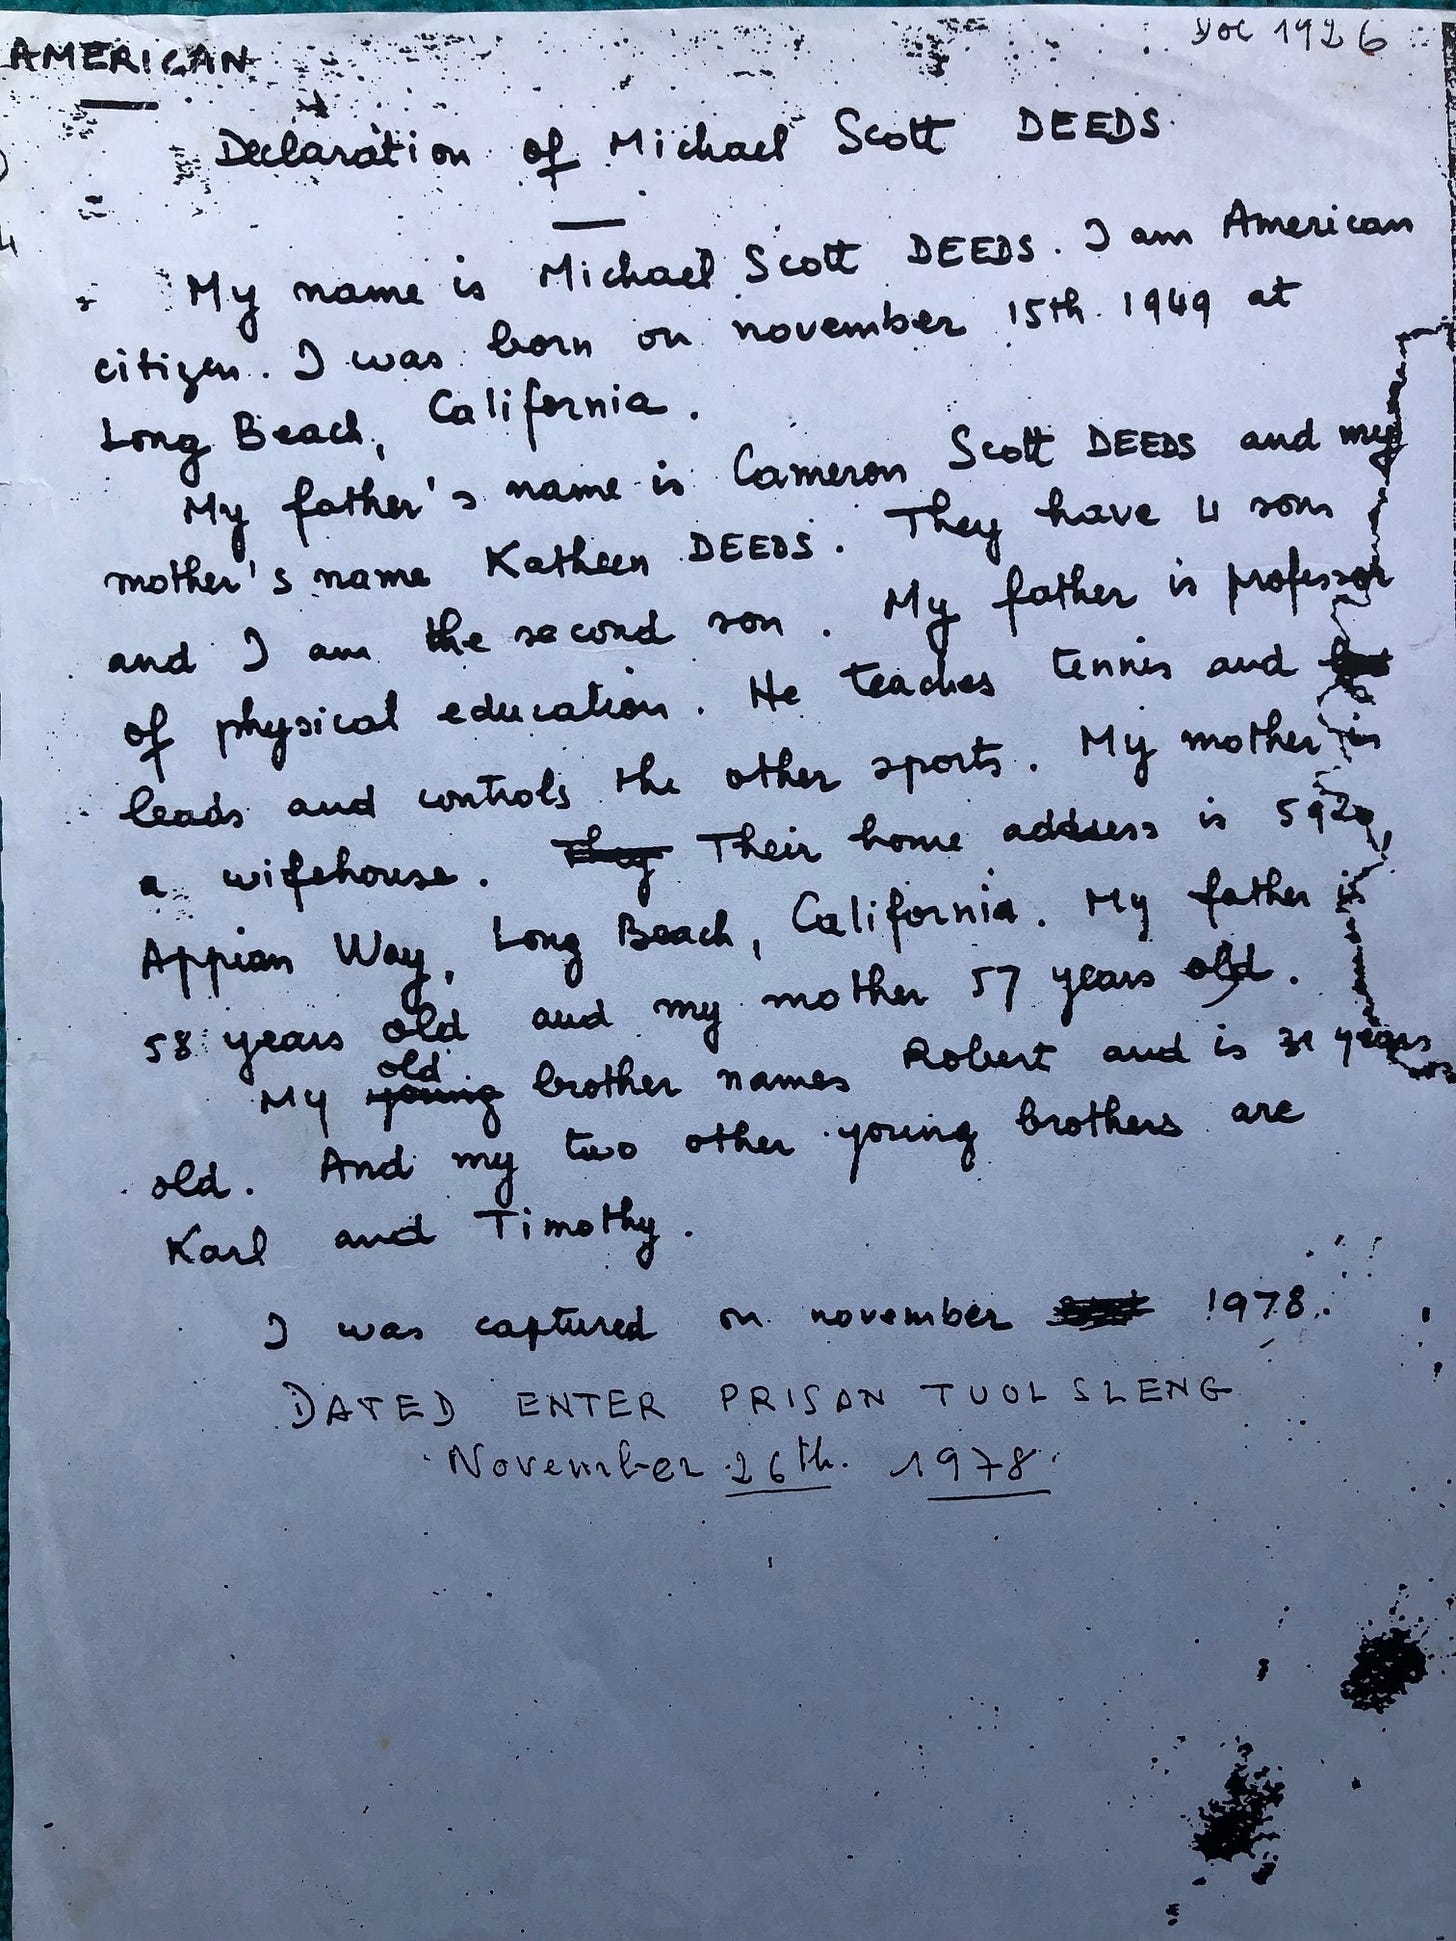 AMERICAN
Doc 1926
Declaration of Michael Scott DEEDS
My name is Michael Scott DEEDS. I am American
citizen. I was born on november 15th 1949 at
Long Beach, California.
My father's name is Cameron Scott DEEDS and my
mother's name Kathleen DEEDS. They have 4 sons
and I am the second son. My father is professor
of physical education. He teaches tennis and
leads and controls the other sports. My mother is
a wifehouse. They Their home address is 5920
Appian Way, Long Beach, California. My father is
58 years old and my mother 57 years old.
old
My young brother names Robert and is 31 years
old. And my two other young brothers are
Karl and Timothy.
I was captured on november 1978.
DATED ENTER PRISAN TUOL SLENG
November 26th. 1978.